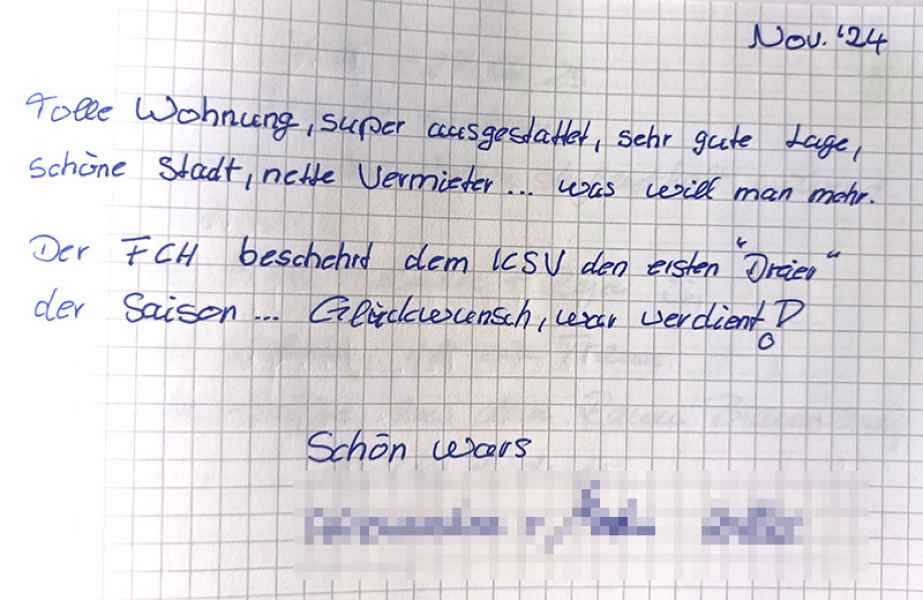 Nov. '24
Tolle Wohnung, super ausgestattet, sehr gute Lage,
schöne Stadt, nette Vermieter... was will man mehr.
Der FCH beschehrt dem KSV den ersten "Dreier"
der Saison... Glückwunsch, war verdient!
Schön wars